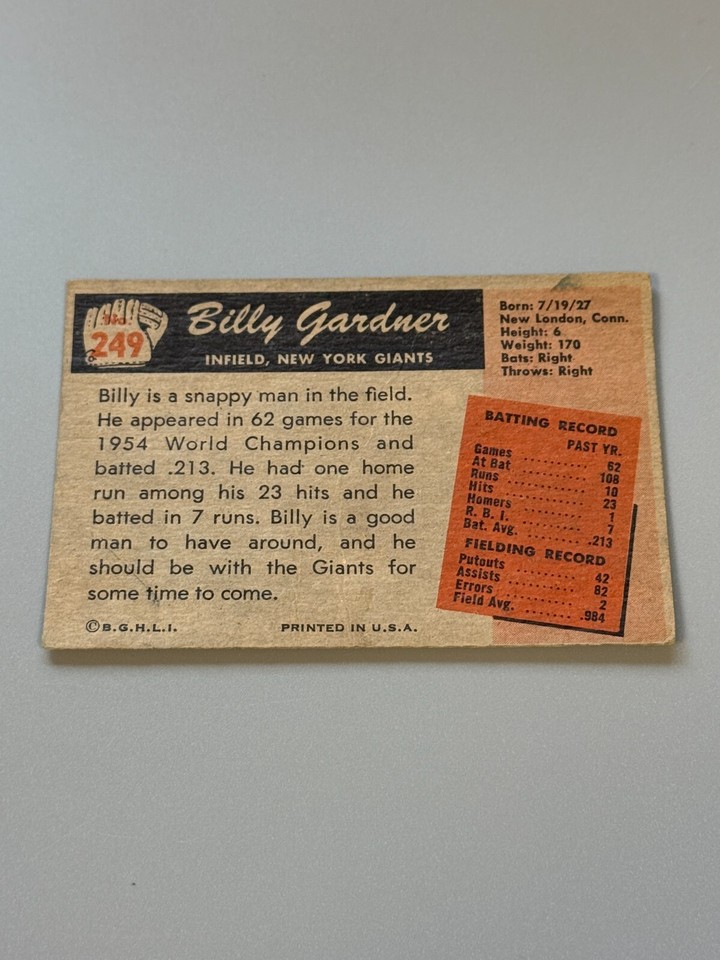 No.
249
Billy Gardner
INFIELD, NEW YORK GIANTS
Born: 7/19/27
New London, Conn.
Height: 6
Weight: 170
Bats: Right
Throws: Right
Billy is a snappy man in the field.
He appeared in 62 games for the
1954 World Champions and
batted .213. He had one home
run among his 23 hits and he
batted in 7 runs. Billy is a good
man to have around, and he
should be with the Giants for
some time to come.
©B.G.H.L.I.
PRINTED IN U.S.A.
BATTING RECORD
PAST YR.
Games .......... 62
At Bat .......... 108
Runs .......... 10
Hits .......... 23
Homers .......... 1
R. B. I. .......... 7
Bat. Avg. .......... .213
FIELDING RECORD
Putouts .......... 42
Assists .......... 82
Errors .......... 2
Field Avg. ........ .984